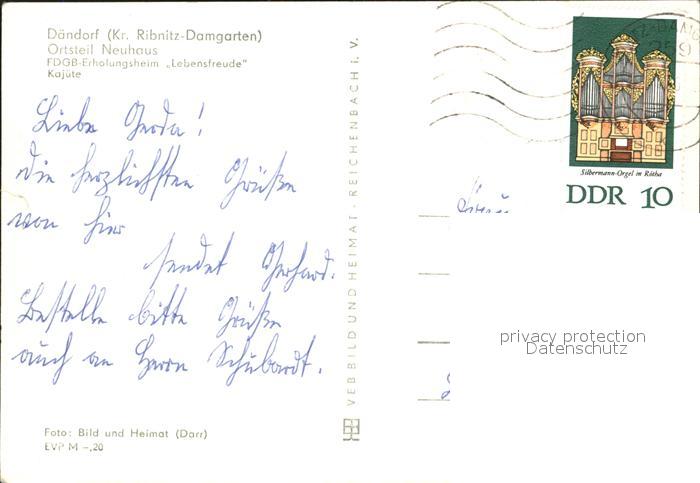 Dändorf (Kr. Ribnitz-Damgarten)
Ortsteil Neuhaus
FDGB-Erholungsheim „Lebensfreude"
Kajüte
Liebe Gerda!
die herzlichsten Grüße
von hier
sendet Gerhard.
Bestelle bitte Grüße
auch an Herrn Schubardt.
Foto: Bild und Heimat (Darr)
EVP M –,20
VEB BILD UND HEIMAT · REICHENBACH i. V.
Silbermann-Orgel in Rötha
DDR 10
privacy protection
Datenschutz